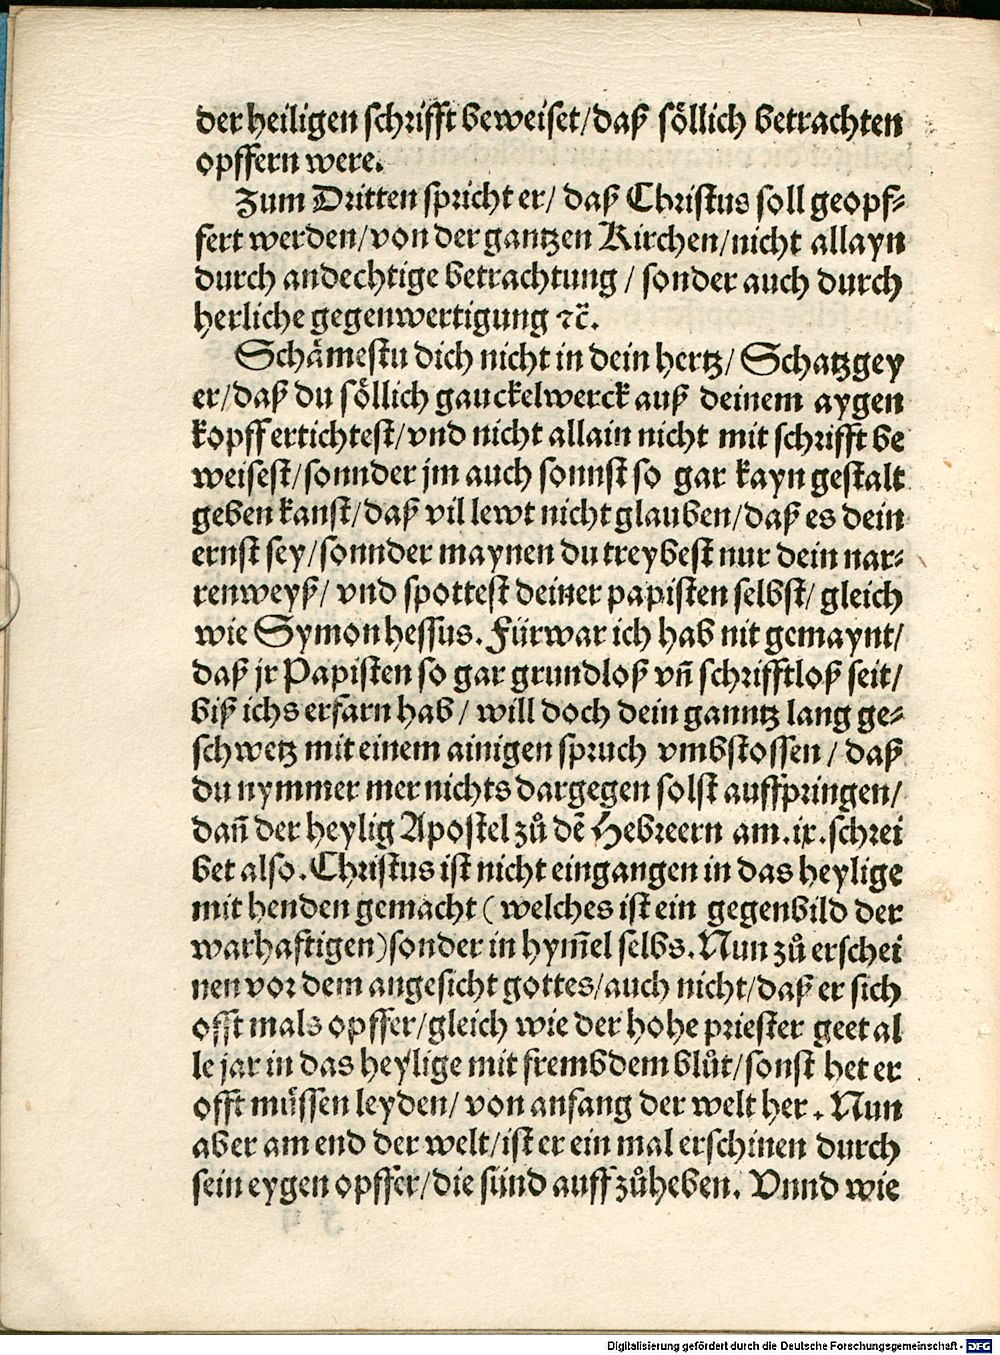 der heiligen schrifft beweiset/daß söllich betrachten
opffern were.
Zum Dritten spricht er/ daß Christus soll geopf⸗
fert werden/von der gantzen Kirchen/nicht allayn
durch andechtige betrachtung / sonder auch durch
herliche gegenwertigung ⁊c̄.
Schämestu dich nicht in dein hertz/ Schatzgey
er/daß du söllich gauckelwerck auß deinem aygen
kopff ertichtest/vnd nicht allain nicht mit schrifft be
weisest/sonnder jm auch sonnst so gar kayn gestalt
geben kanst/daß vil lewt nicht glauben/daß es dein
ernst sey/sonnder maynen du treybest nur dein nar⸗
renweyß/ vnd spottest deiner papisten selbst/ gleich
wie Symon hessus. Fürwar ich hab nit gemaynt/
daß jr Papisten so gar grundloß vn̄ schrifftloß seit/
biß ichs erfarn hab/ will doch dein ganntz lang ge⸗
schwetz mit einem ainigen spruch vmbstossen / daß
du nymmer mer nichts dargegen solst auffpringen/
dan̄ der heylig Apostel zů dē Hebreern am.ix.schrei
bet also. Christus ist nicht eingangen in das heylige
mit henden gemacht ( welches ist ein gegenbild der
warhaftigen)sonder in hym̄el selbs. Nun zů erschei
nen vor dem angesicht gottes/auch nicht/daß er sich
offt mals opffer/gleich wie der hohe priester geet al
le jar in das heylige mit frembdem blůt/sonst het er
offt müssen leyden/ von anfang der welt her. Nun
aber am end der welt/ist er ein mal erschinen durch
sein eygen opffer/die sünd auff zůheben. Vnnd wie
Digitalisierung gefördert durch die Deutsche Forschungsgemeinschaft - DFG